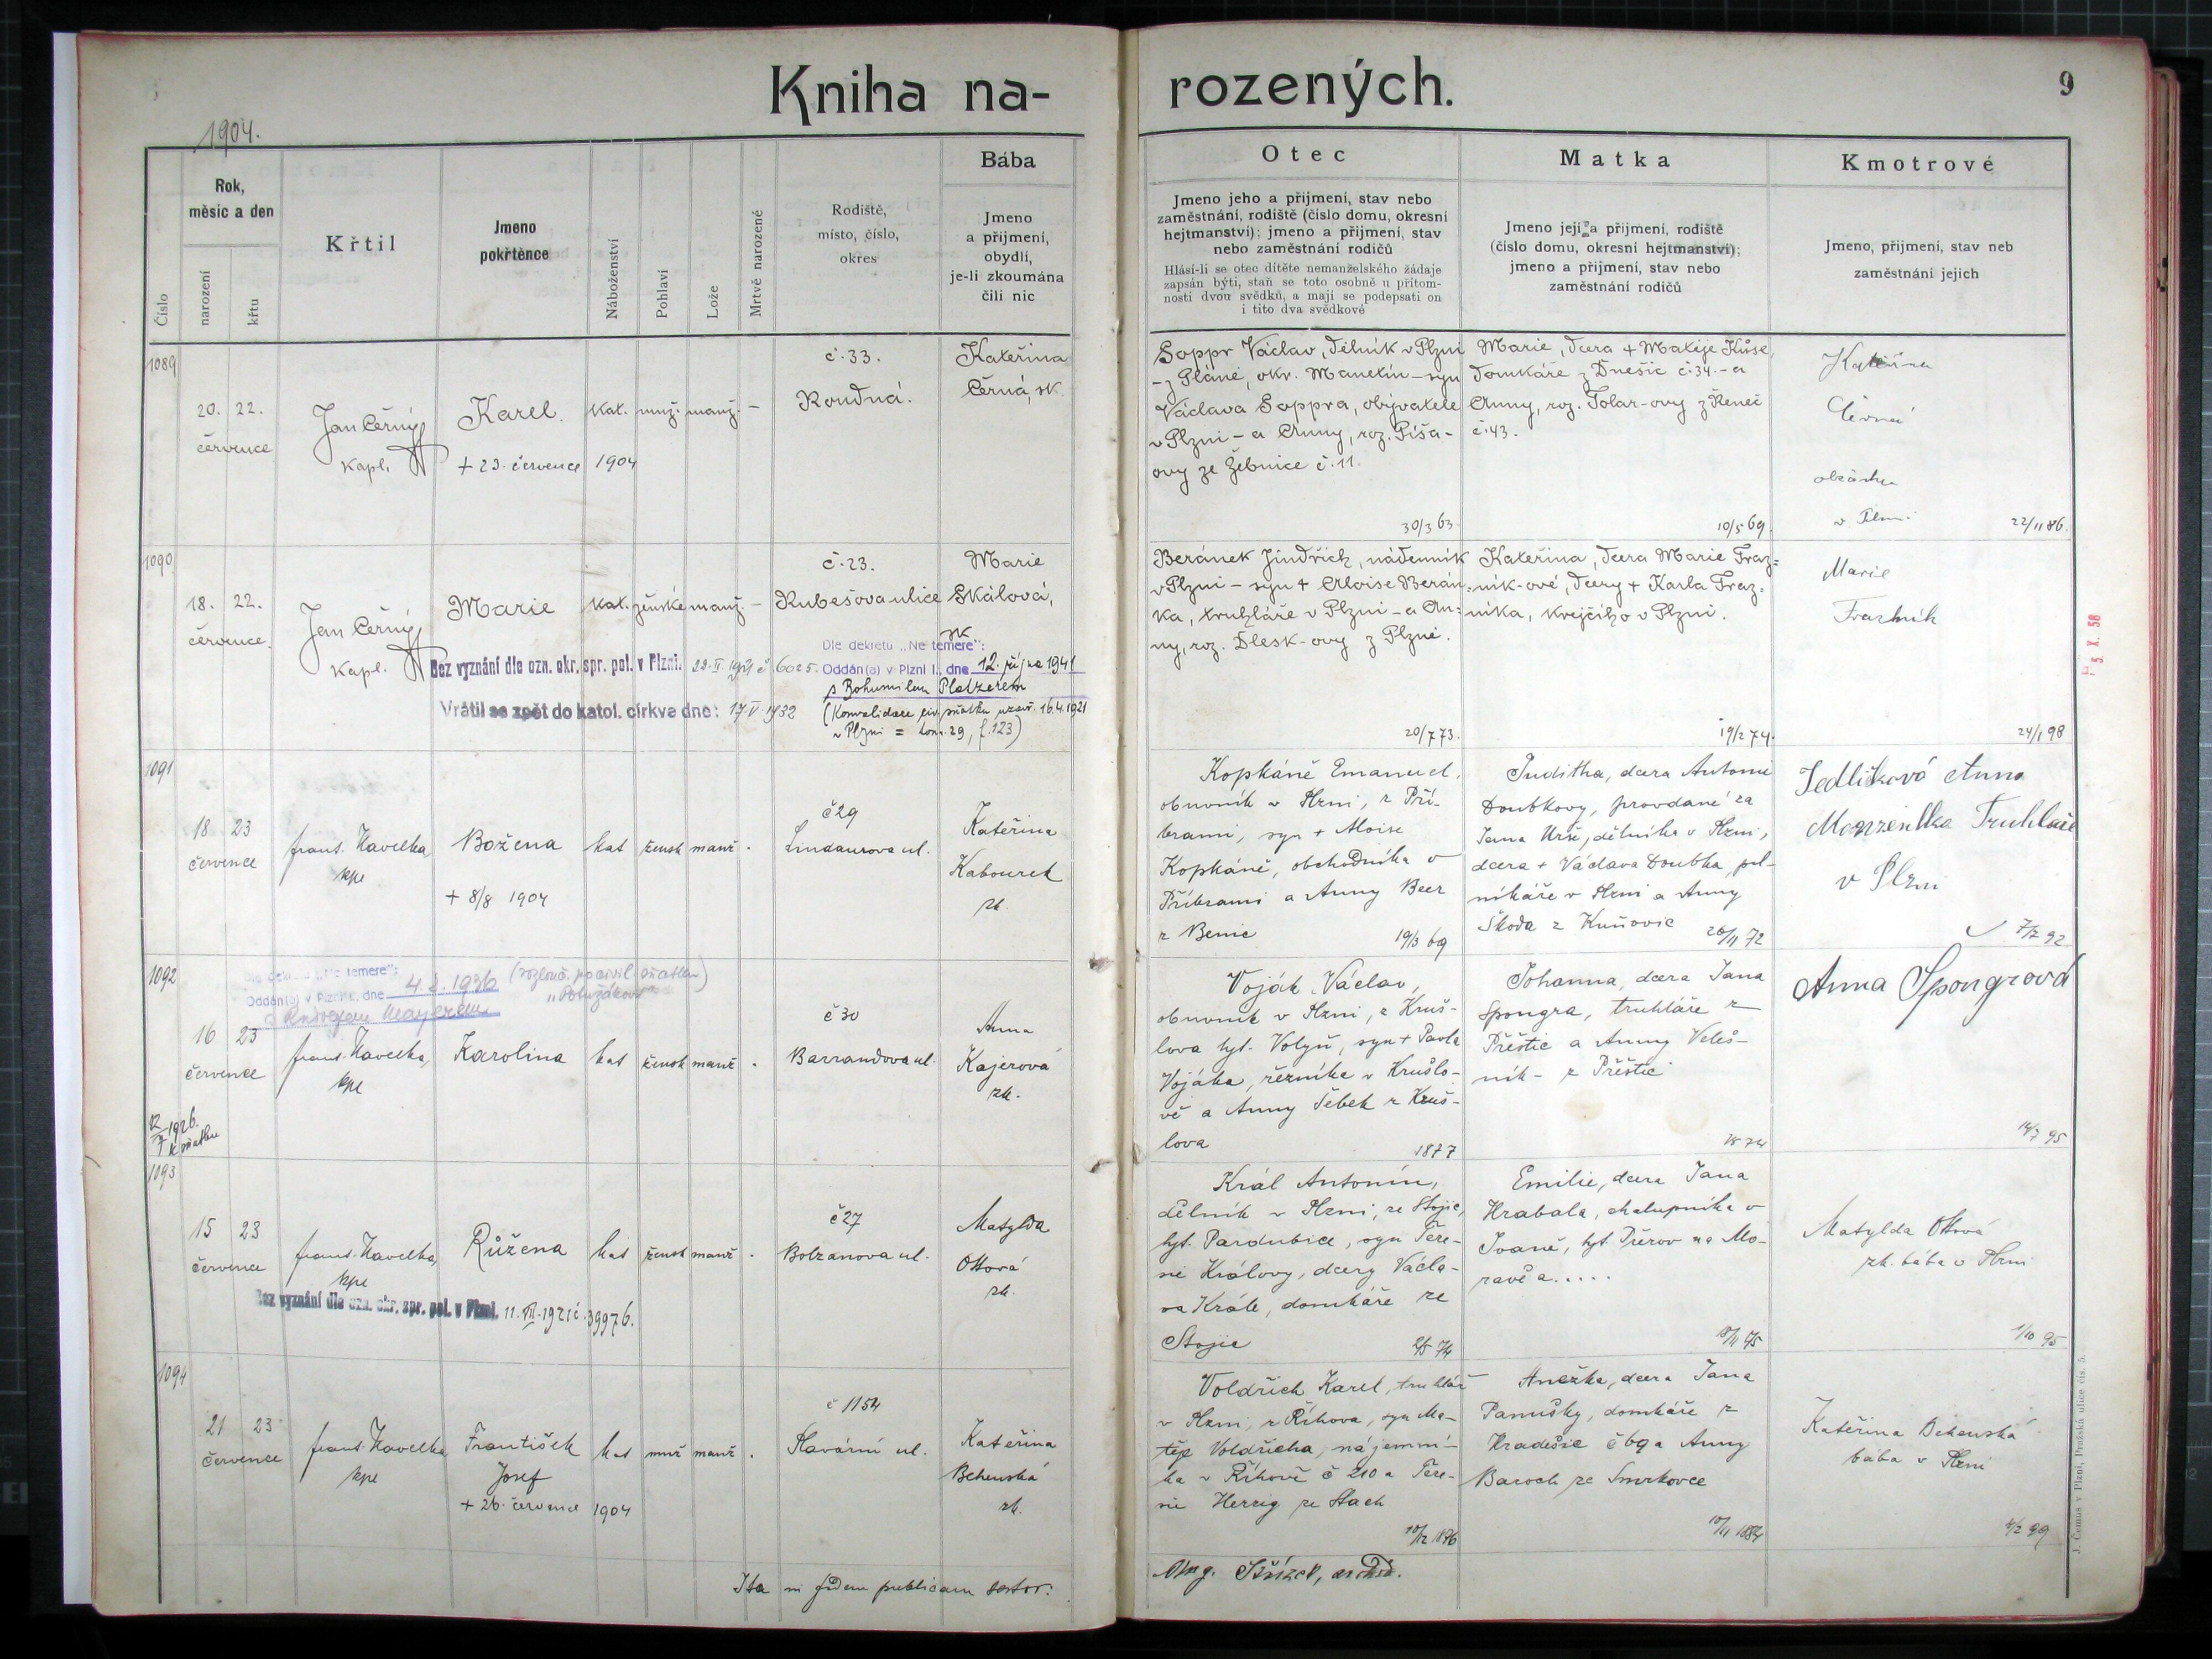 Kniha na-
rozených.
9
1904.
Číslo
Rok,
měsíc a den
narození
křtu
Křtil
Jmeno
pokřtěnce
Náboženství
Pohlaví
Lože
Mrtvě narozené
Rodiště,
místo, číslo,
okres
Bába
Jmeno
a přijmení,
obydlí,
je-li zkoumána
čili nic
Otec
Jmeno jeho a přijmení, stav nebo
zaměstnání, rodiště (číslo domu, okresní
hejtmanství); jmeno a přijmení, stav
nebo zaměstnání rodičů
Hlásí-li se otec dítěte nemanželského žádaje
zapsán býti, staň se toto osobně u přítom-
nosti dvou svědků, a mají se podepsati on
i tito dva svědkové
Matka
Jmeno její a přijmení, rodiště
(číslo domu, okresní hejtmanství);
jmeno a přijmení, stav nebo
zaměstnání rodičů
Kmotrové
Jmeno, přijmení, stav neb
zaměstnání jejich
1089
20. 22.
července
Jan Černý
kapl.
Karel.
+ 23. července 1904
kat. muž. manž. –
č. 33.
Roudná.
Kateřina
Černá, sk.
Soppr Václav, dělník v Plzni
– z Pláně, okr. Manetín – syn
Václava Soppra, obývatele
v Plzni – a Anny, roz. Píša-
ovy ze Žebnice č. 11.
30/3 63.
Marie, dcera + Matěje Kůse,
domkáře z Dnešic č. 34. – a
Anny, roz. Tolar-ovy z Řeneč
č. 43.
10/5 69.
Kateřina
Černá
v Plzni
22/11 86.
1090
18. 22.
července
Jan Černý
kapl.
Marie
kat. ženské manž. –
č. 23.
Rubešova ulice
Marie
Skálová,
sk
Bez vyznání dle ozn. okr. spr. pol. v Plzni. 22. II. 1921 č. 6025.
Vrátil se zpět do katol. církve dne: 17. V. 1932
Dle dekretu „Ne temere":
Oddán(a) v Plzni I., dne 12. října 1941
s Bohumilem Platzerem
(Konvalidace civ. sňatku uzavř. 16.4.1921
v Plzni = tom. 29, f. 123)
Beránek Jindřich, nádenník
v Plzni – syn + Aloise Berán-
ka, truhláře v Plzni – a An-
ny, roz. Dlesk-ovy z Plzně.
20/7 73.
Kateřina, dcera Marie Fraz-
ník-ové, dcery + Karla Fraz-
níka, krejčího v Plzni.
19/2 74.
Marie
Frazník
24/1 98
5. X. 58
1091
18 23
července
frant. Havelka
kpl
Božena
+ 8/8 1904
kat žensk manž .
č 29
Lindaurova ul.
Kateřina
Kabourek
zk.
Kopkáně Emanuel,
obuvník v Plzni, z Pří-
brami, syn + Aloise
Kopkáně, obchodníka v
Příbrami a Anny Beer
z Benic
19/3 69
Juditha, dcera Antonie
Doubkovy, provdané za
Jana Urše, dělníka v Plzni,
dcera + Václava Doubka, pil-
nikáře v Plzni a Anny
Škoda z Kuňovic
20/11 72
Jedličková Anna
Manželka Truhláře
v Plzni
7/7 92
1092
Dle dekretu „Ne temere":
Oddán(a) v Plzni I., dne 4. 2. 1936 (rozlouč. po civil. sňatku)
16 23
července
12/7 1926.
k sňatku
frant. Havelka,
kpl
Karolina
kat žensk manž .
č 30
Barrandova ul.
Anna
Kajerová
zk.
Voják Václav,
obuvník v Plzni, z Kruš-
lova hjt. Volyň, syn + Pavla
Vojáka, řezníka v Krušlo-
vě a Anny Šebek z Kruš-
lova
1877
Johanna, dcera Jana
Spongra, truhláře z
Přeštic a Anny Veleš-
ník – z Přeštic
Anna Spongrová
14/7 95
1093
15 23
července
frant. Havelka,
kpl
Růžena
kat žensk manž .
č 27
Bolzanova ul.
Matylda
Ottová
zk.
Bez vyznání dle ozn. okr. spr. pol. v Plzni. 11. VII. 1921 č. 39976.
Král Antonín,
dělník v Plzni, ze Stojic,
hjt. Pardubice, syn Tere-
sie Královy, dcery Václa-
va Krále, domkáře ze
Stojic
2/5 74
Emilie, dcera Jana
Hrabala, chalupníka v
Ivaně, hjt. Přerov na Mo-
ravě a.....
18/11 75
Matylda Ottová
zk. bába v Plzni
1/10 95
1094
21 23
července
frant. Havelka
kpl
František
Josef
+ 26. července 1904
kat muž manž .
č 1154
Plavární ul.
Kateřina
Behenská
zk.
Voldřich Karel, truhlář
v Plzni, z Říhova, syn Ma-
těje Voldřicha, nájemní-
ka v Říhově č 210 a Tere-
sie Herzig ze Stach
10/12 1876
Anežka, dcera Jana
Panušky, domkáře z
Hradešic č 69 a Anny
Baroch ze Smrkovce
10/11 1884
Kateřina Behenská
bába v Plzni
4/2 99
Ita in fidem publicam testor:
Msg. Střízek, archid.
J. Čemus v Plzni, Pražská ulice čís. 5.